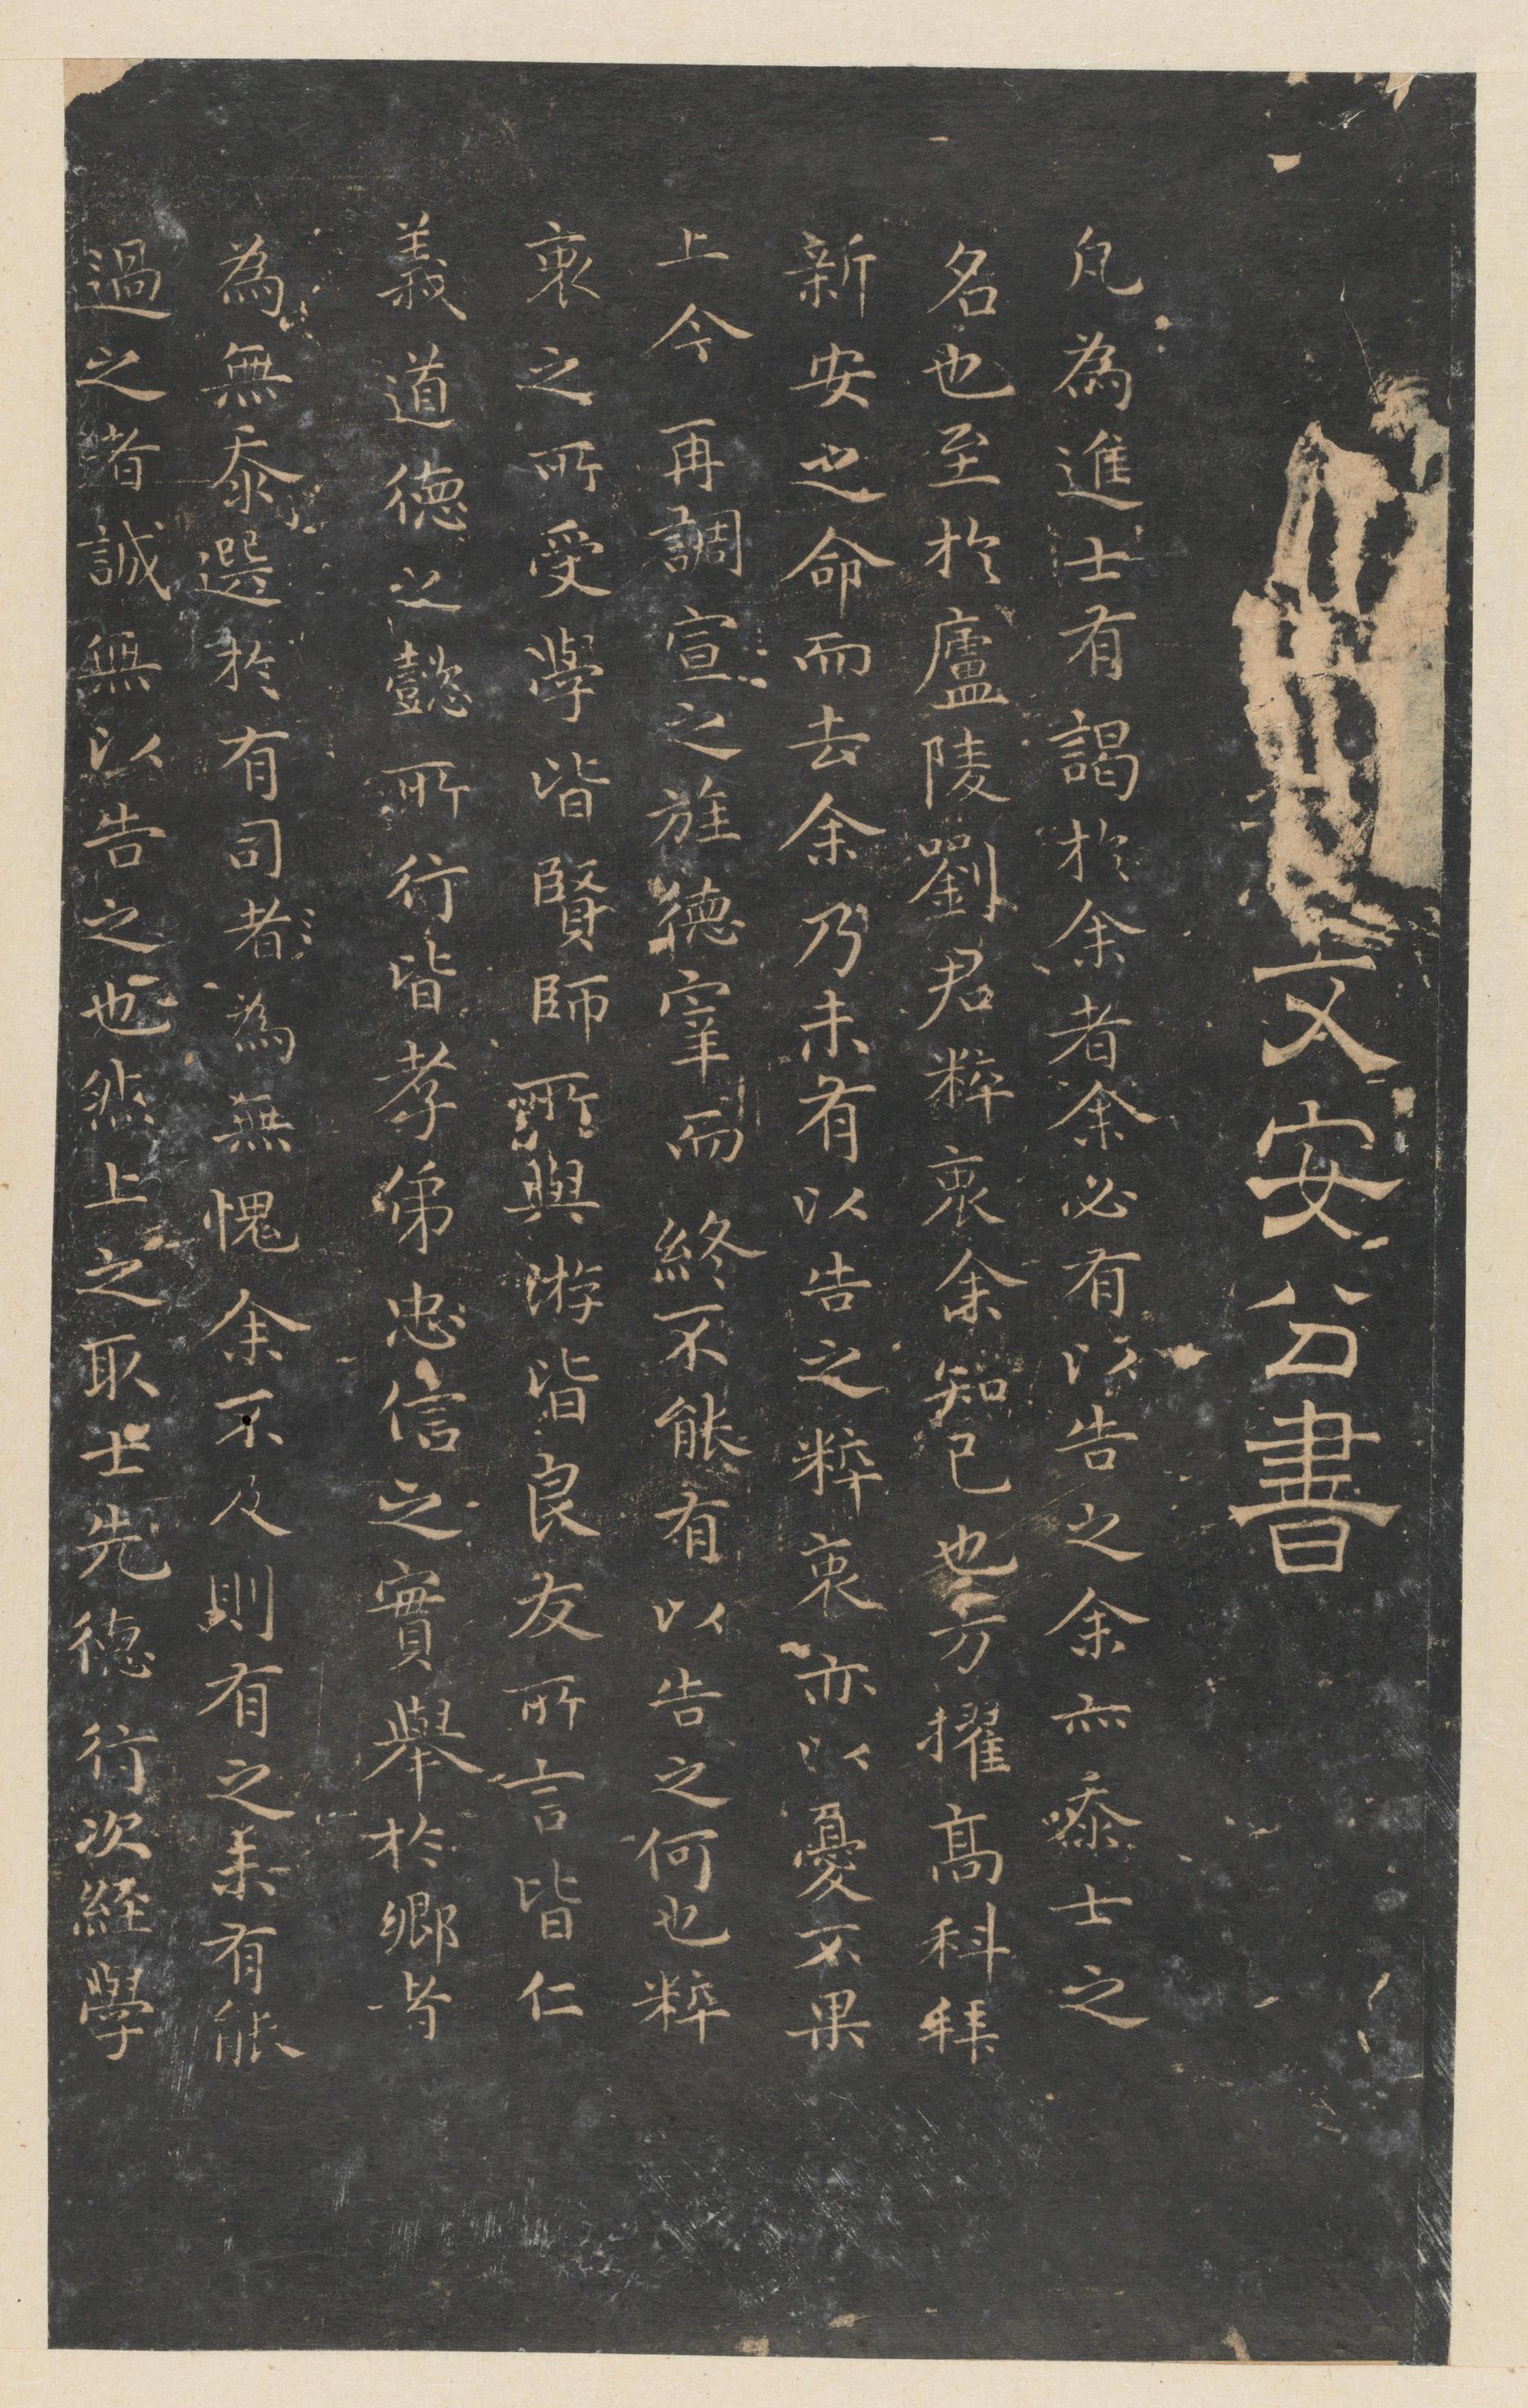 文安公書
凡為進士有謁於余者余必有以告之余亦忝士之
名也至於廬陵劉君粹衷余知己也方擢高科拜
新安之命而去余乃未有以告之粹衷亦以憂不果
上今再調宣之旌德宰而終不能有以告之何也粹
衷之所受學皆賢師所與游皆良友所言皆仁
義道德之懿所行皆孝弟忠信之實舉於鄉者
為無忝選於有司者為無愧余不及則有之未有能
過之者誠無以告之也然上之取士先德行次經學